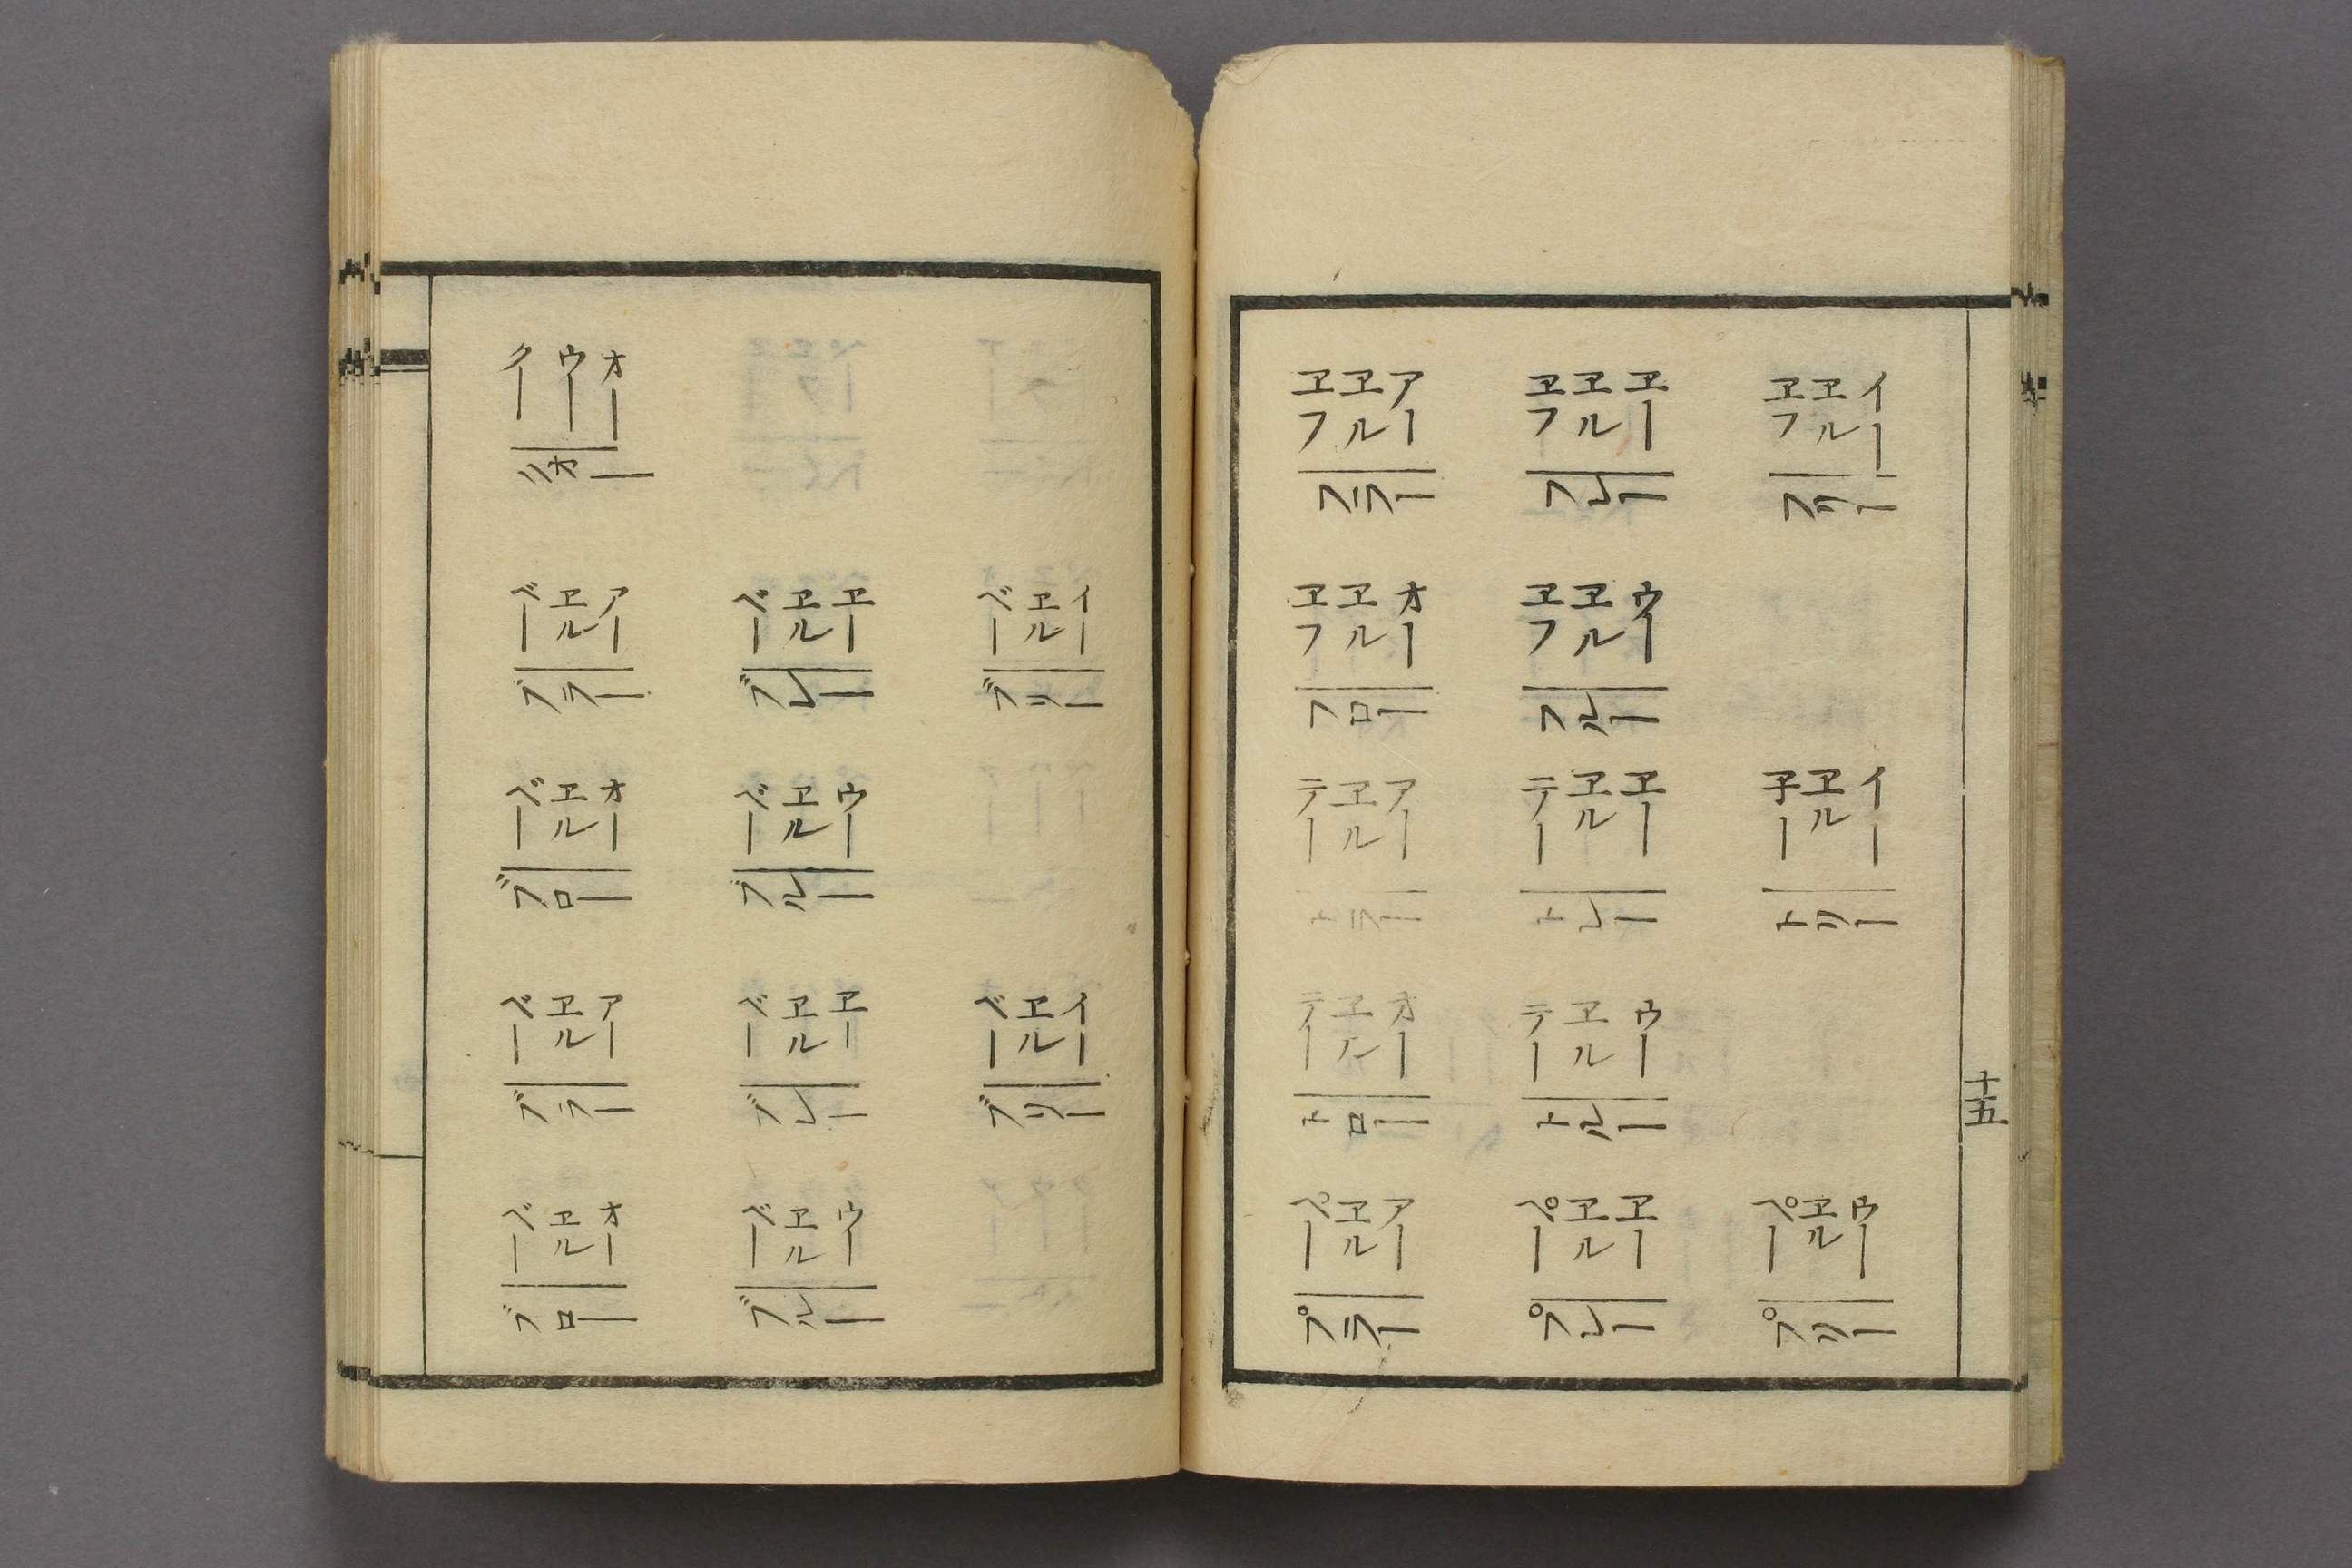 ヱフヱルアー ヱフヱルヱー ヱフヱルイー
フラー フレー フリー
ヱフヱルオー ヱフヱルウー
フロー フルー
テーヱルアー テーヱルヱー 子ーヱルイー
トラー トレー トリー
テーヱルオー テーヱルウー
トロー トルー
ペーヱルアー ペーヱルヱー ペーヱルウー
プラー プレー プリー
十五
クーウーオー
クオー
ベーヱルアー ベーヱルヱー ベーヱルイー
ブラー ブレー ブリー
ベーヱルオー ベーヱルウー
ブロー ブルー
ベーヱルアー ベーヱルヱー ベーヱルイー
ブラー ブレー ブリー
ベーヱルオー ベーヱルウー
ブロー ブルー